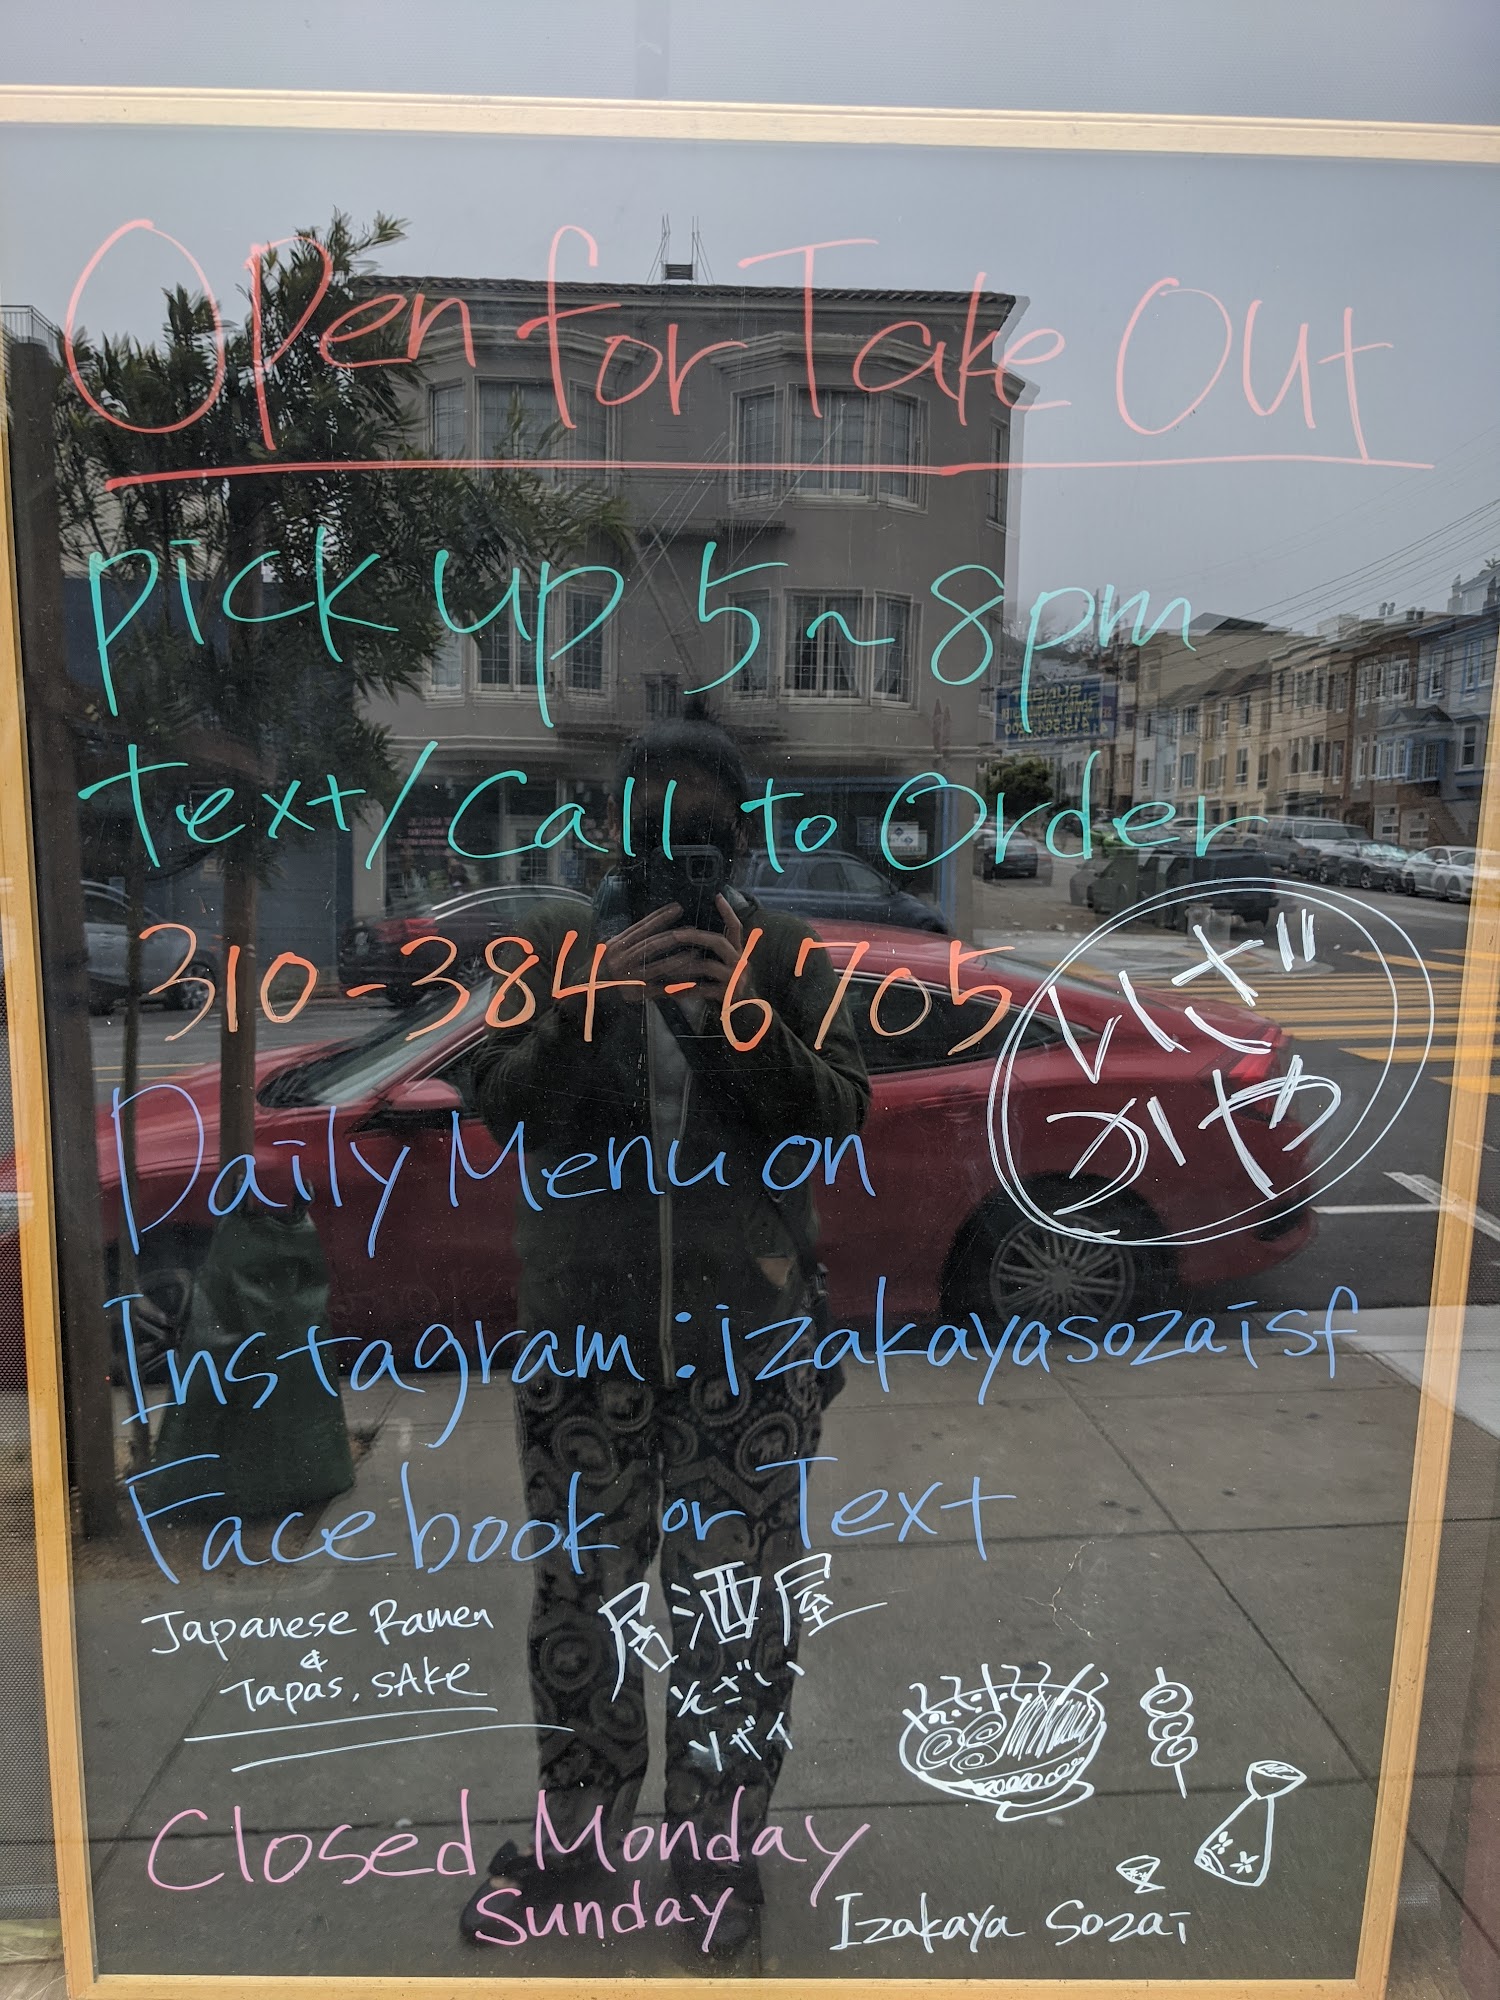 Open for Take Out
pick up 5~8pm
Text/Call to Order
310-384-6705
いざ
かや
Daily Menu on
Instagram: izakayasozaisf
Facebook or Text
Japanese Ramen
&
Tapas, SAKE
居酒屋
そざい
ソザイ
Closed Monday
Sunday
Izakaya Sozai